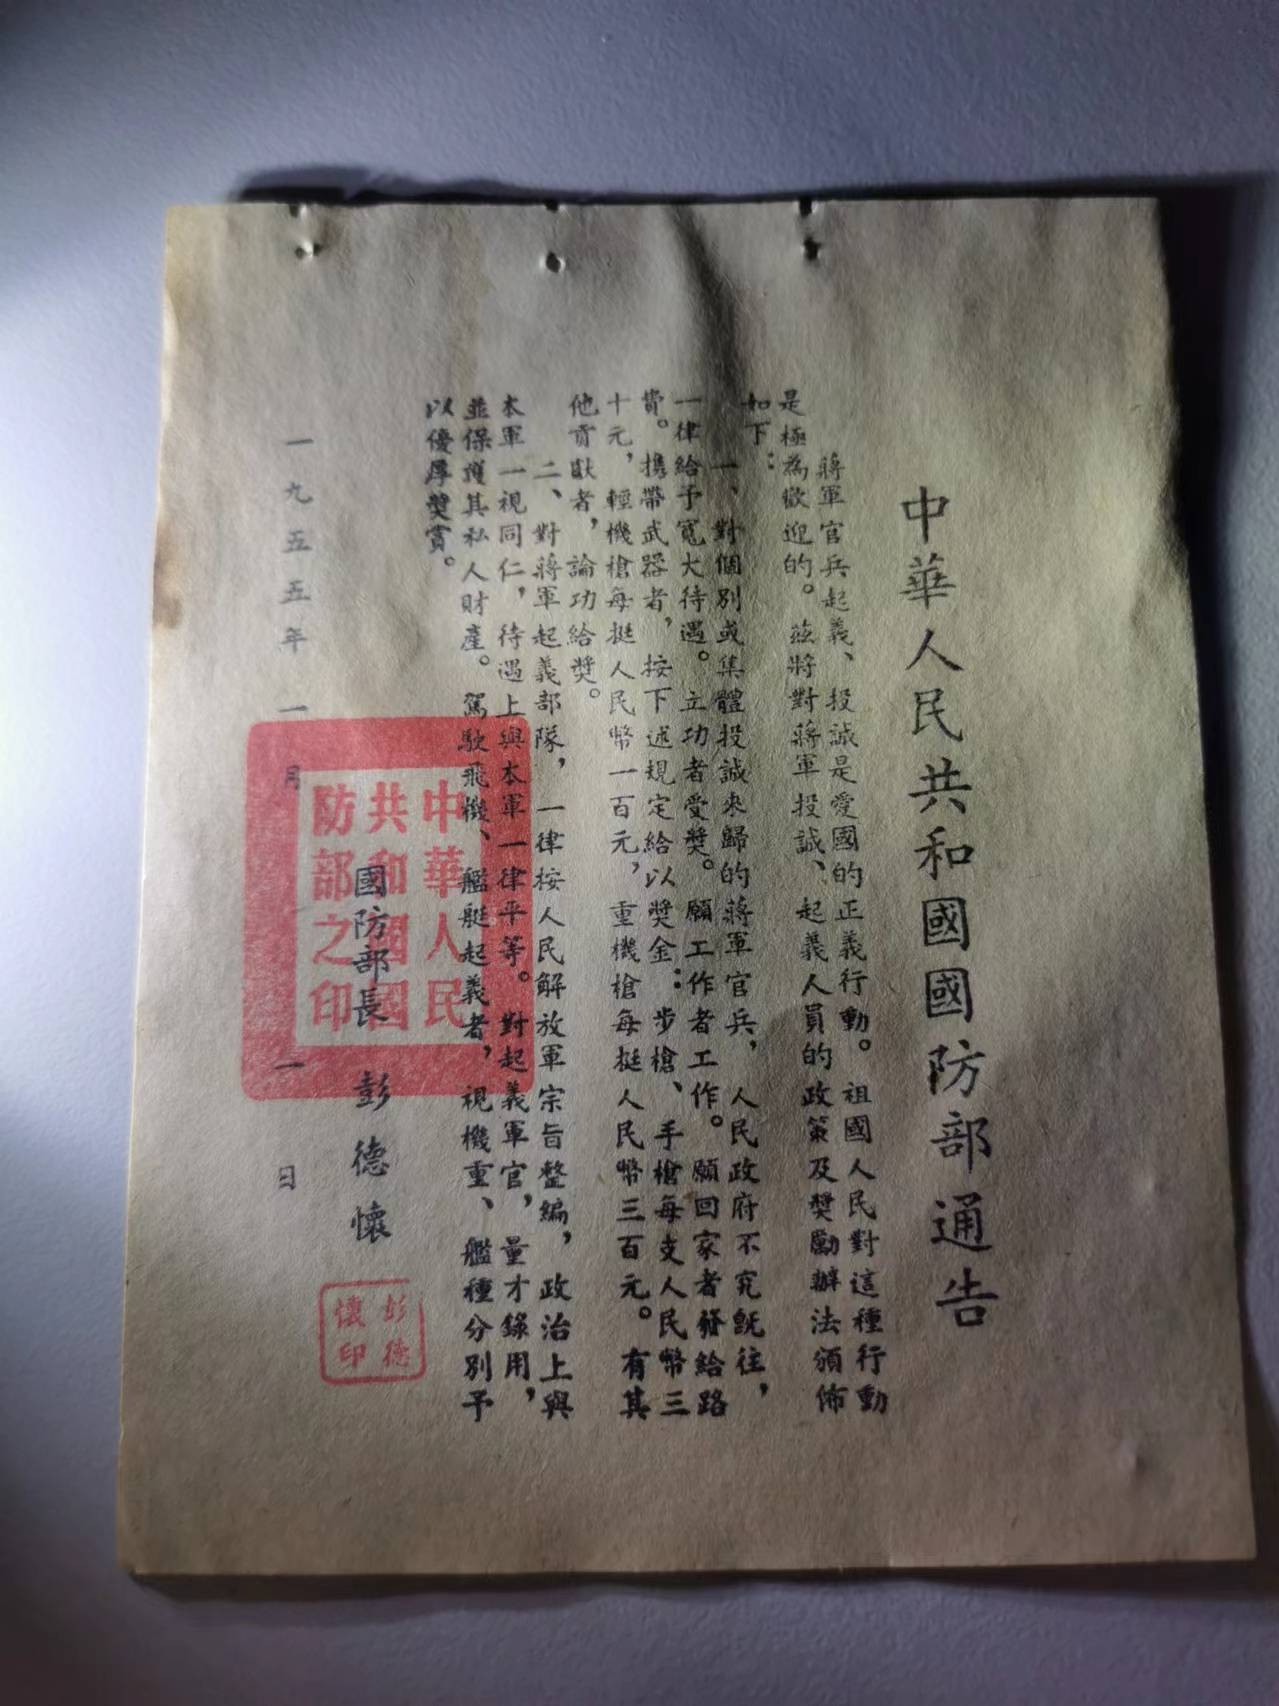 中華人民共和國國防部通告
蔣軍官兵起義、投誠是愛國的正義行動。祖國人民對這種行動
是極為歡迎的。茲將對蔣軍投誠、起義人員的政策及獎勵辦法頒佈
如下：
一、對個別或集體投誠來歸的蔣軍官兵，人民政府不究既往，
一律給予寬大待遇。立功者受獎。願工作者工作。願回家者發給路
費。携帶武器者，按下述規定給以獎金：步槍、手槍每支人民幣三
十元，輕機槍每挺人民幣一百元，重機槍每挺人民幣三百元。有其
他貢獻者，論功給獎。
二、對蔣軍起義部隊，一律按人民解放軍宗旨整編，政治上與
本軍一視同仁，待遇上與本軍一律平等。對起義軍官，量才錄用，
並保護其私人財產。駕駛飛機、艦艇起義者，視機重、艦種分別予
以優厚獎賞。
國防部長 彭德懷
一九五五年一月一日
中華人民
共和國國
防部之印
彭德
懷印